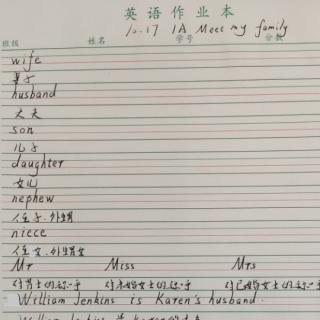 英语作业本
10.17 1A Meet my family
班级 姓名 学号 分数
wife
妻子
husband
丈夫
son
儿子
daughter
女儿
nephew
侄子.外甥
niece
侄女.外甥女
Mr Miss Mrs
对男士的称呼 对未婚女士的称呼 对已婚女士的称呼
William Jenkins is Karen's husband.